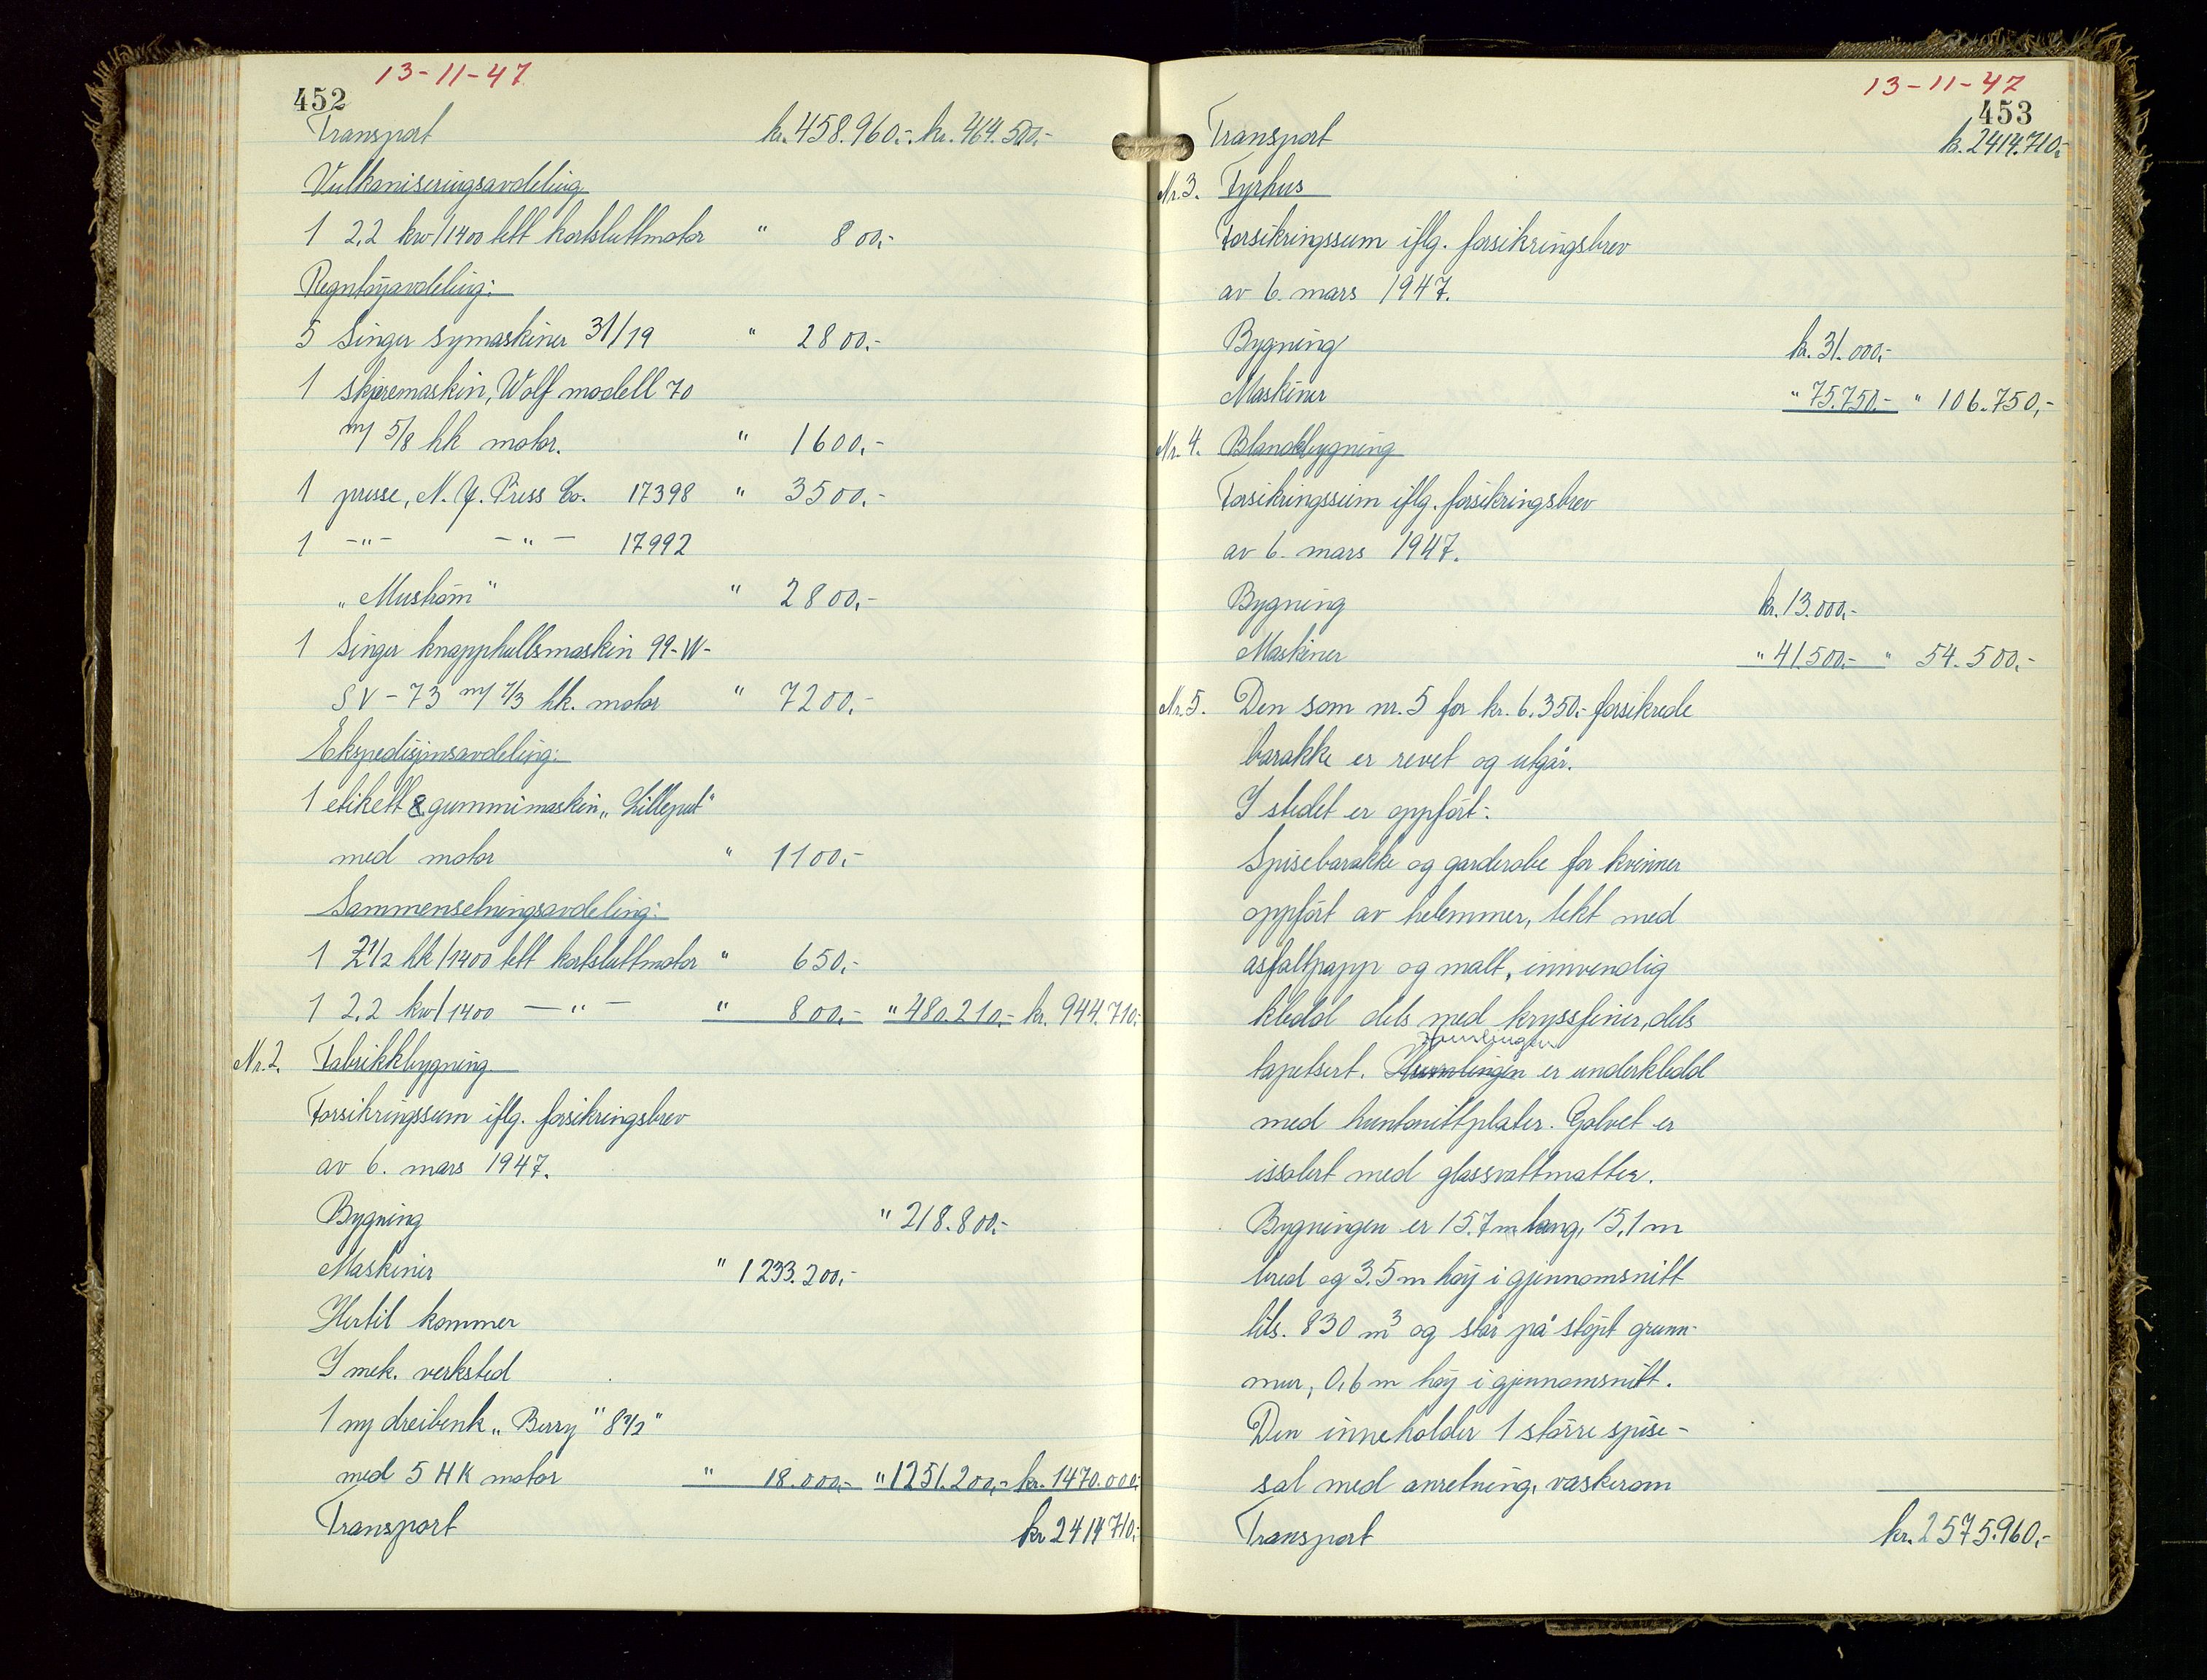 13-11-47
452
Transport kr. 458.960.- kr. 464.500,-
Vulkaniseringsavdeling
1 2,2 kw/1400 tett kortsluttmotor " 800,-
Regntöyavdeling:
5 Singer symaskiner 31/19 " 2800,-
1 skjæremaskin, Wolf modell 70
m/ 5/8 hk motor. " 1600,-
1 presse, N.Y. Press Co. 17398 " 3500,-
1 -"- -"- 17992
„Mushöm" " 2800,-
1 Singer knapphullsmaskin 99-W-
SV-73 m/ 1/3 hk. motor " 7200,-
Ekspedisjonsavdeling:
1 etikett & gummimaskin „Lilleput"
med motor " 1100,-
Sammensetningsavdeling:
1 2 1/2 hk/1400 tett kortsluttmotor " 650,-
1 2,2 kw/1400 -"- " 800,- " 480.210,- kr. 944.710,-
Nr. 2. Fabrikkbygning
Forsikringssum iflg. forsikringsbrev
av 6. mars 1947.
Bygning " 218.800,-
Maskiner " 1233.200,-
Hertil kommer
I mek. verksted
1 ny dreibenk „Berry" 8 1/2"
med 5 HK motor " 18.000,- " 1251.200,- kr. 1470.000,-
Transport kr 2414710,-
13-11-47
453
Transport kr. 2414.710,-
Nr. 3. Fyrhus
Forsikringssum iflg. forsikringsbrev
av 6. mars 1947.
Bygning kr. 31.000,-
Maskiner " 75.750.- " 106.750,-
Nr. 4. Blandebygning
Forsikringssum iflg. forsikringsbrev
av 6. mars 1947.
Bygning kr. 13.000,-
Maskiner " 41.500.- " 54.500,-
Nr. 5. Den som nr. 5 for kr. 6.350.- forsikrede
barakke er revet og utgår.
I stedet er oppfört:
Spisebarakke og garderobe for kvinner
oppfört av helemmer, tekt med
asfaltpapp og malt, innvendig
kledd dels med kryssfiner, dels
tapetsert. Himlingen er underkledd
med huntonittplater. Golvet er
issolert med glassvattmatter.
Bygningen er 15.7 m lang, 15,1 m
bred og 3.5 m höy i gjennomsnitt
tils. 830 m³ og står på stöpt grunn-
mur, 0,6 m höy i gjennomsnitt.
Den inneholder 1 större spise-
sal med anretning, vaskerom
Transport kr. 2575.960,-